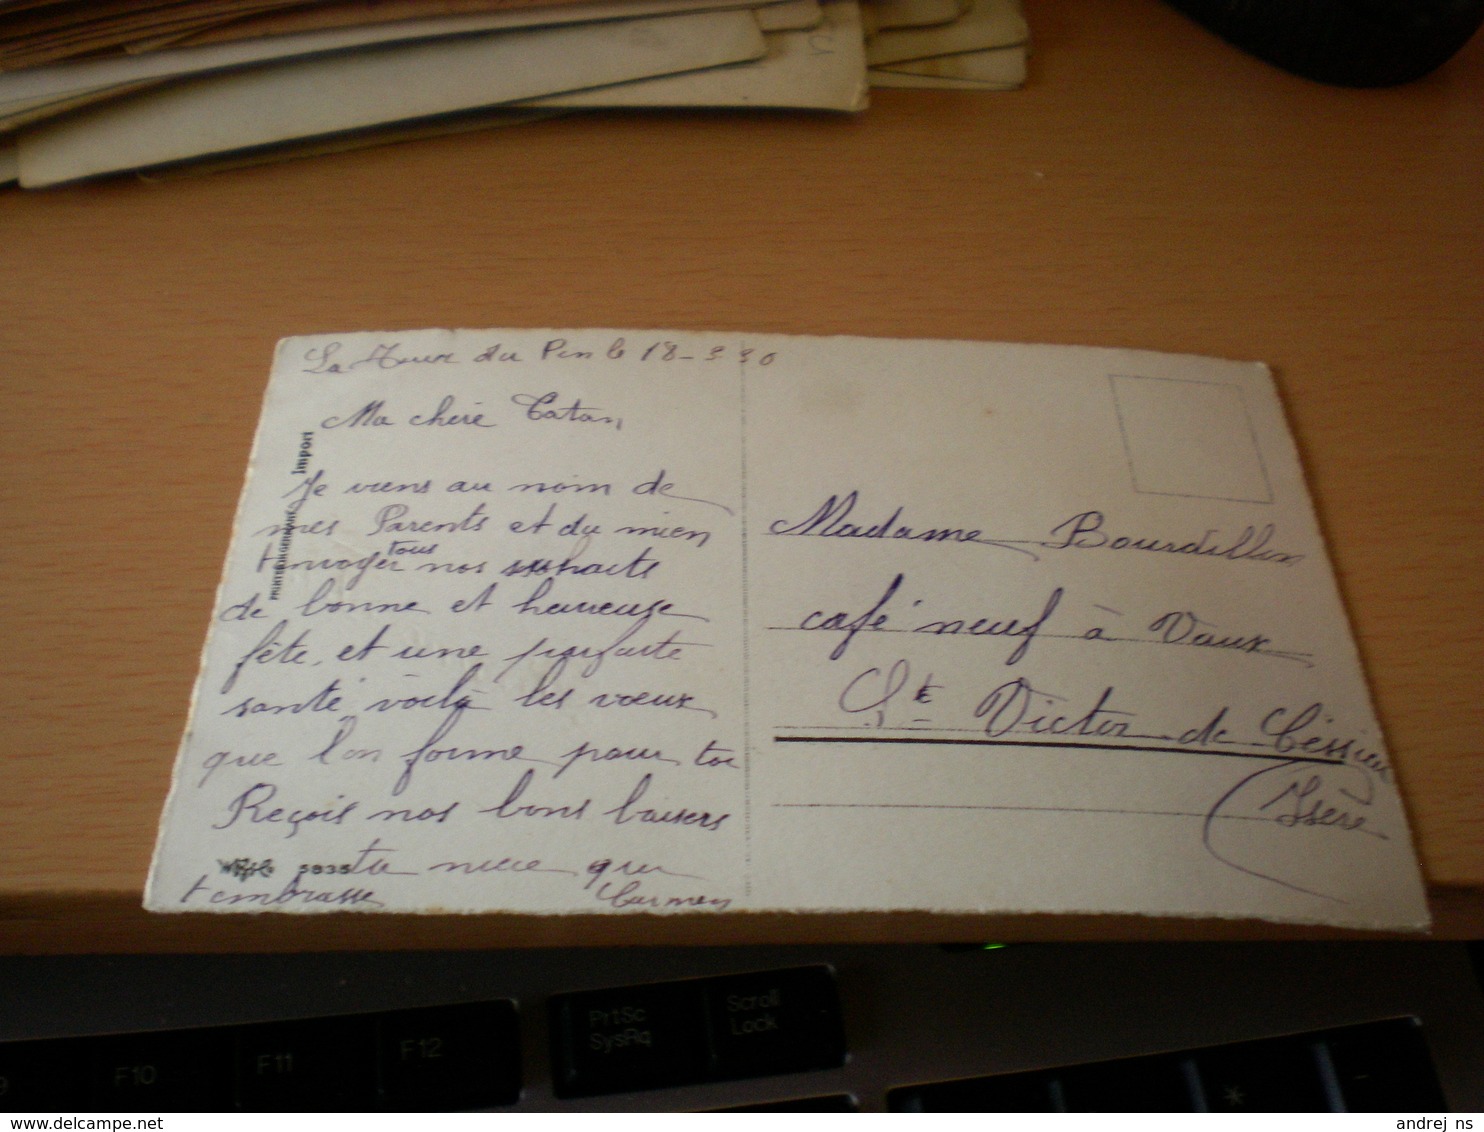 La Tour du Pin le 18-3 30
Ma chère Tatan,
Je viens au nom de
mes Parents et du mien
t'envoyer tous nos souhaits
de bonne et heureuse
fête, et une parfaite
santé, voilà les vœux
que l'on forme pour toi
Reçois nos bons baisers
ta niece qui
t'embrasse Carmen
Import
5935
Madame Bourdillon
café neuf à Vaux
St Victor de Céssieu
Isère
F10
F11
F12
PrtSc
SysRq
Scroll
Lock
*
delcampe.net
andrej ns